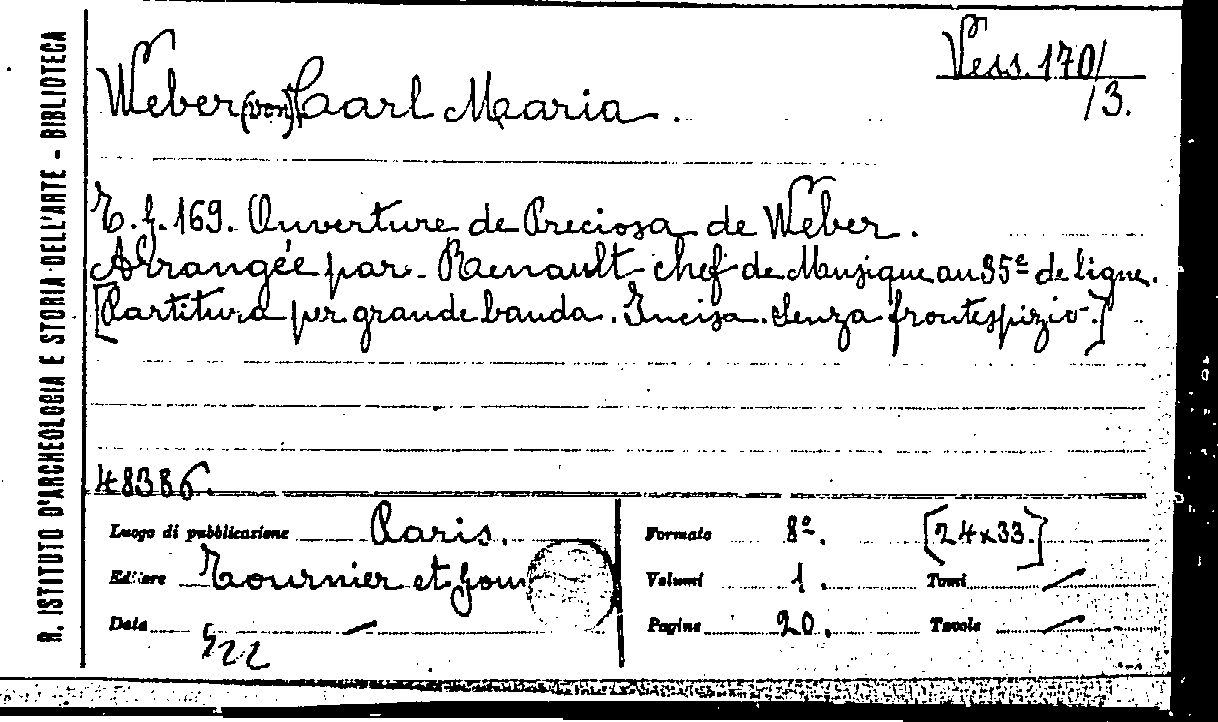 R. ISTITUTO D'ARCHEOLOGIA E STORIA DELL'ARTE - BIBLIOTECA
Vess. 170/
/3.
Weber (von) Carl Maria.
T. G. 169. Ouverture de Preciosa de Weber.
Arrangée par Renault chef de Musique au 35e de ligne.
[Partitura per grande banda. Incisa. Senza frontespizio.]
48386.
Luogo di pubblicazione Paris.
Editore Tournier et
Data
Formato 8º. [24x33.]
Volumi 1. Tomi
Pagine 20. Tavole